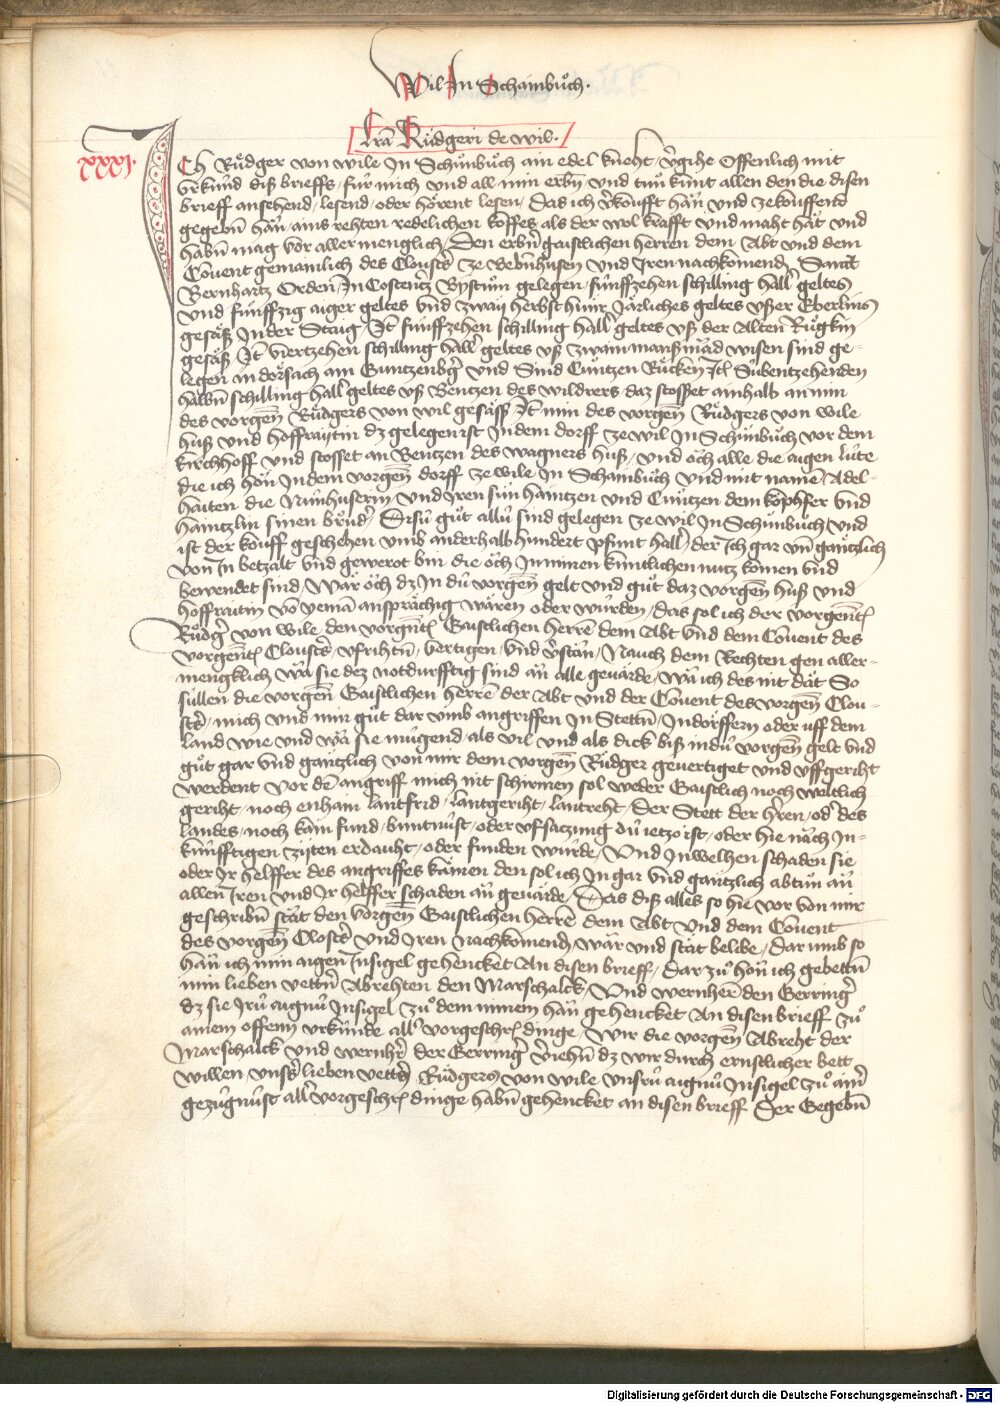 Wil In Schainbůch.
Lrã Růdgeri de wil.
xxxi.
Ich Růdger von wile In Schůnbůch ain edel kneht, v̓gihe Offenlich mit
vrkünd diß brieffs, für mich vnd all min erbñ, vnd tun kunt allen den die disen
brieff ansehend, lesend, oder hörent lesen, Das ich v̓koufft hãn vnd ze kouffend
gegebñ hãn, ains rehten redelichen koffes als der wol krafft vnd maht hãt vnd
habñ mag vor aller menglich, Den erbñ gaistlichen herren dem Abt vnd dem
Couent gemainlich des Closters ze Bebñhusen vnd Iren nachkomend, Sanct
Bernhartz Orden, In Costentz Bystum gelegen, fünffzehen schilling hall̓ geltes
vnd fünffzig aiger geltes vnd zway herbst hunr Järliches geltes vßer Eberlins
gesäß In der Staig Jt̃ fünffzehen schilling hall̓ geltes vß der Alten Rugkin
gesäß Jt̃ viertzehen schilling hall̓ geltes vß zwain manßmãd wisen sind ge-
legen In dorsach am Guntzenbg̓ vnd Sind Cůntzen Rucken Jt̃ Subentzehenden
halbñ schilling hall̓ geltes vß Bentzen des wildrers daz stosset ainhalb an min
des vorgeñ Rüdgers von wil gesäß Jt̃ min des vorgeñ Rüdgers von wile
huß vnd hoffraytin dz gelegen ist In dem dorff ze wil In Schünbůch vor dem
kirchhoff vnd stosset an Bentzen des wagners huß, vnd och alle die aigen lüte
die ich hon In dem vorgeñ dorff ze wile In Schainbůch vnd mit namẽ Adel-
haiten die Nunhuserin, vnd Iren sun haintzen vnd Cůntzen dem köphfer vnd
haintzlin sinen brůd̓, Disü gůt allü sind gelegen ze wil In Schünbuch vnd
ist der kouff geschehen vmb anderhalb hundert pfunt hall̓ der Ich gar vñ gantzlich
von In betzalt vnd gewerot bin die och In minen kuntlichen nutz komen vnd
bewendet sind, Wär och dz In dü vorgeñ gelt vnd gůt daz vorgeñ huß vnd
hoffraitin võ yemã anspråchig wären oder würden, das sol ich der vorgenñt
Rüdg̓ von wile den vorgñt Gaistlichen herrẽ dem Abt vnd dem Couent des
vorgenñt Closters, vfrihtñ, vertigen, vnd v̓stãn, Nauch dem Rechten gen aller-
mengklich wã sie dez notdurfftig sind ãn alle geuärde, wã ich des nit dät So
süllen die vorgeñ Gaistlichen herrẽ der Abt vnd der Couent des vorgeñ Clou-
sters, mich vnd min gůt dar vmb angriffen In Stettñ, In dörffern oder uff dem
land wie vnd wã sie mügend, als vil vnd als dick biß in dü vorgeñ gelt vnd
gůt gar vnd gantzlich von mir dem vorgeñ Rüdger geuertiget vnd vffgeriht
werdent vor dẽ angriff mich nit schirmen sol weder Gaistlich noch weltlich
geriht, noch enham lantfrid, lantgeriht, lantreht, der Stett der h̓ren, od̓ des
landes, noch kain fund, buntnüst, oder vfsatzung dü ietzo ist, oder hie nãch In-
künfftigen zijten erdauht, oder funden würde, Vnd In welhen schaden sie
oder Ir helffer des angriffes kämen den sol ich In gar vnd gantzlich abtůn ãn
allen Iren vnd Ir helffer schaden ãn geuärde, Das diß alles so hie vor von mir
geschribñ stãt den vorgeñ Gaistlichen herrẽ dem Abt vnd dem Couent
des vorgeñ Closters vnd Iren Nachkomend wãr vnd stãt belibe, Dar umb so
hãn ich min aigen Insigel gehencket An disen brieff, Dar zů hon ich gebettñ
min lieben vettrñ Abrehten den Marschalck, Vnd wernherẽ den Gerring̓
dz sie Irü aignü Insigel zů dem minem hãn gehencket An disen brieff zů
ainem offenn vrkünde all̓ vorgeschrı̃ dinge, Wir die vorgeñ Abreht der
Marschalck vnd wernhr̓ der Gerring̓ v̓iehñ dz wir durch ernstlicher bett
willen, vnsers lieben vettrñ Rüdgers von wile vnsrü aignü Insigel zů ainr̓
gezügnüst all̓ vorgeschrı̃ dinge habñ gehencket an disen brieff Der Gegebñ
Digitalisierung gefördert durch die Deutsche Forschungsgemeinschaft - DFG